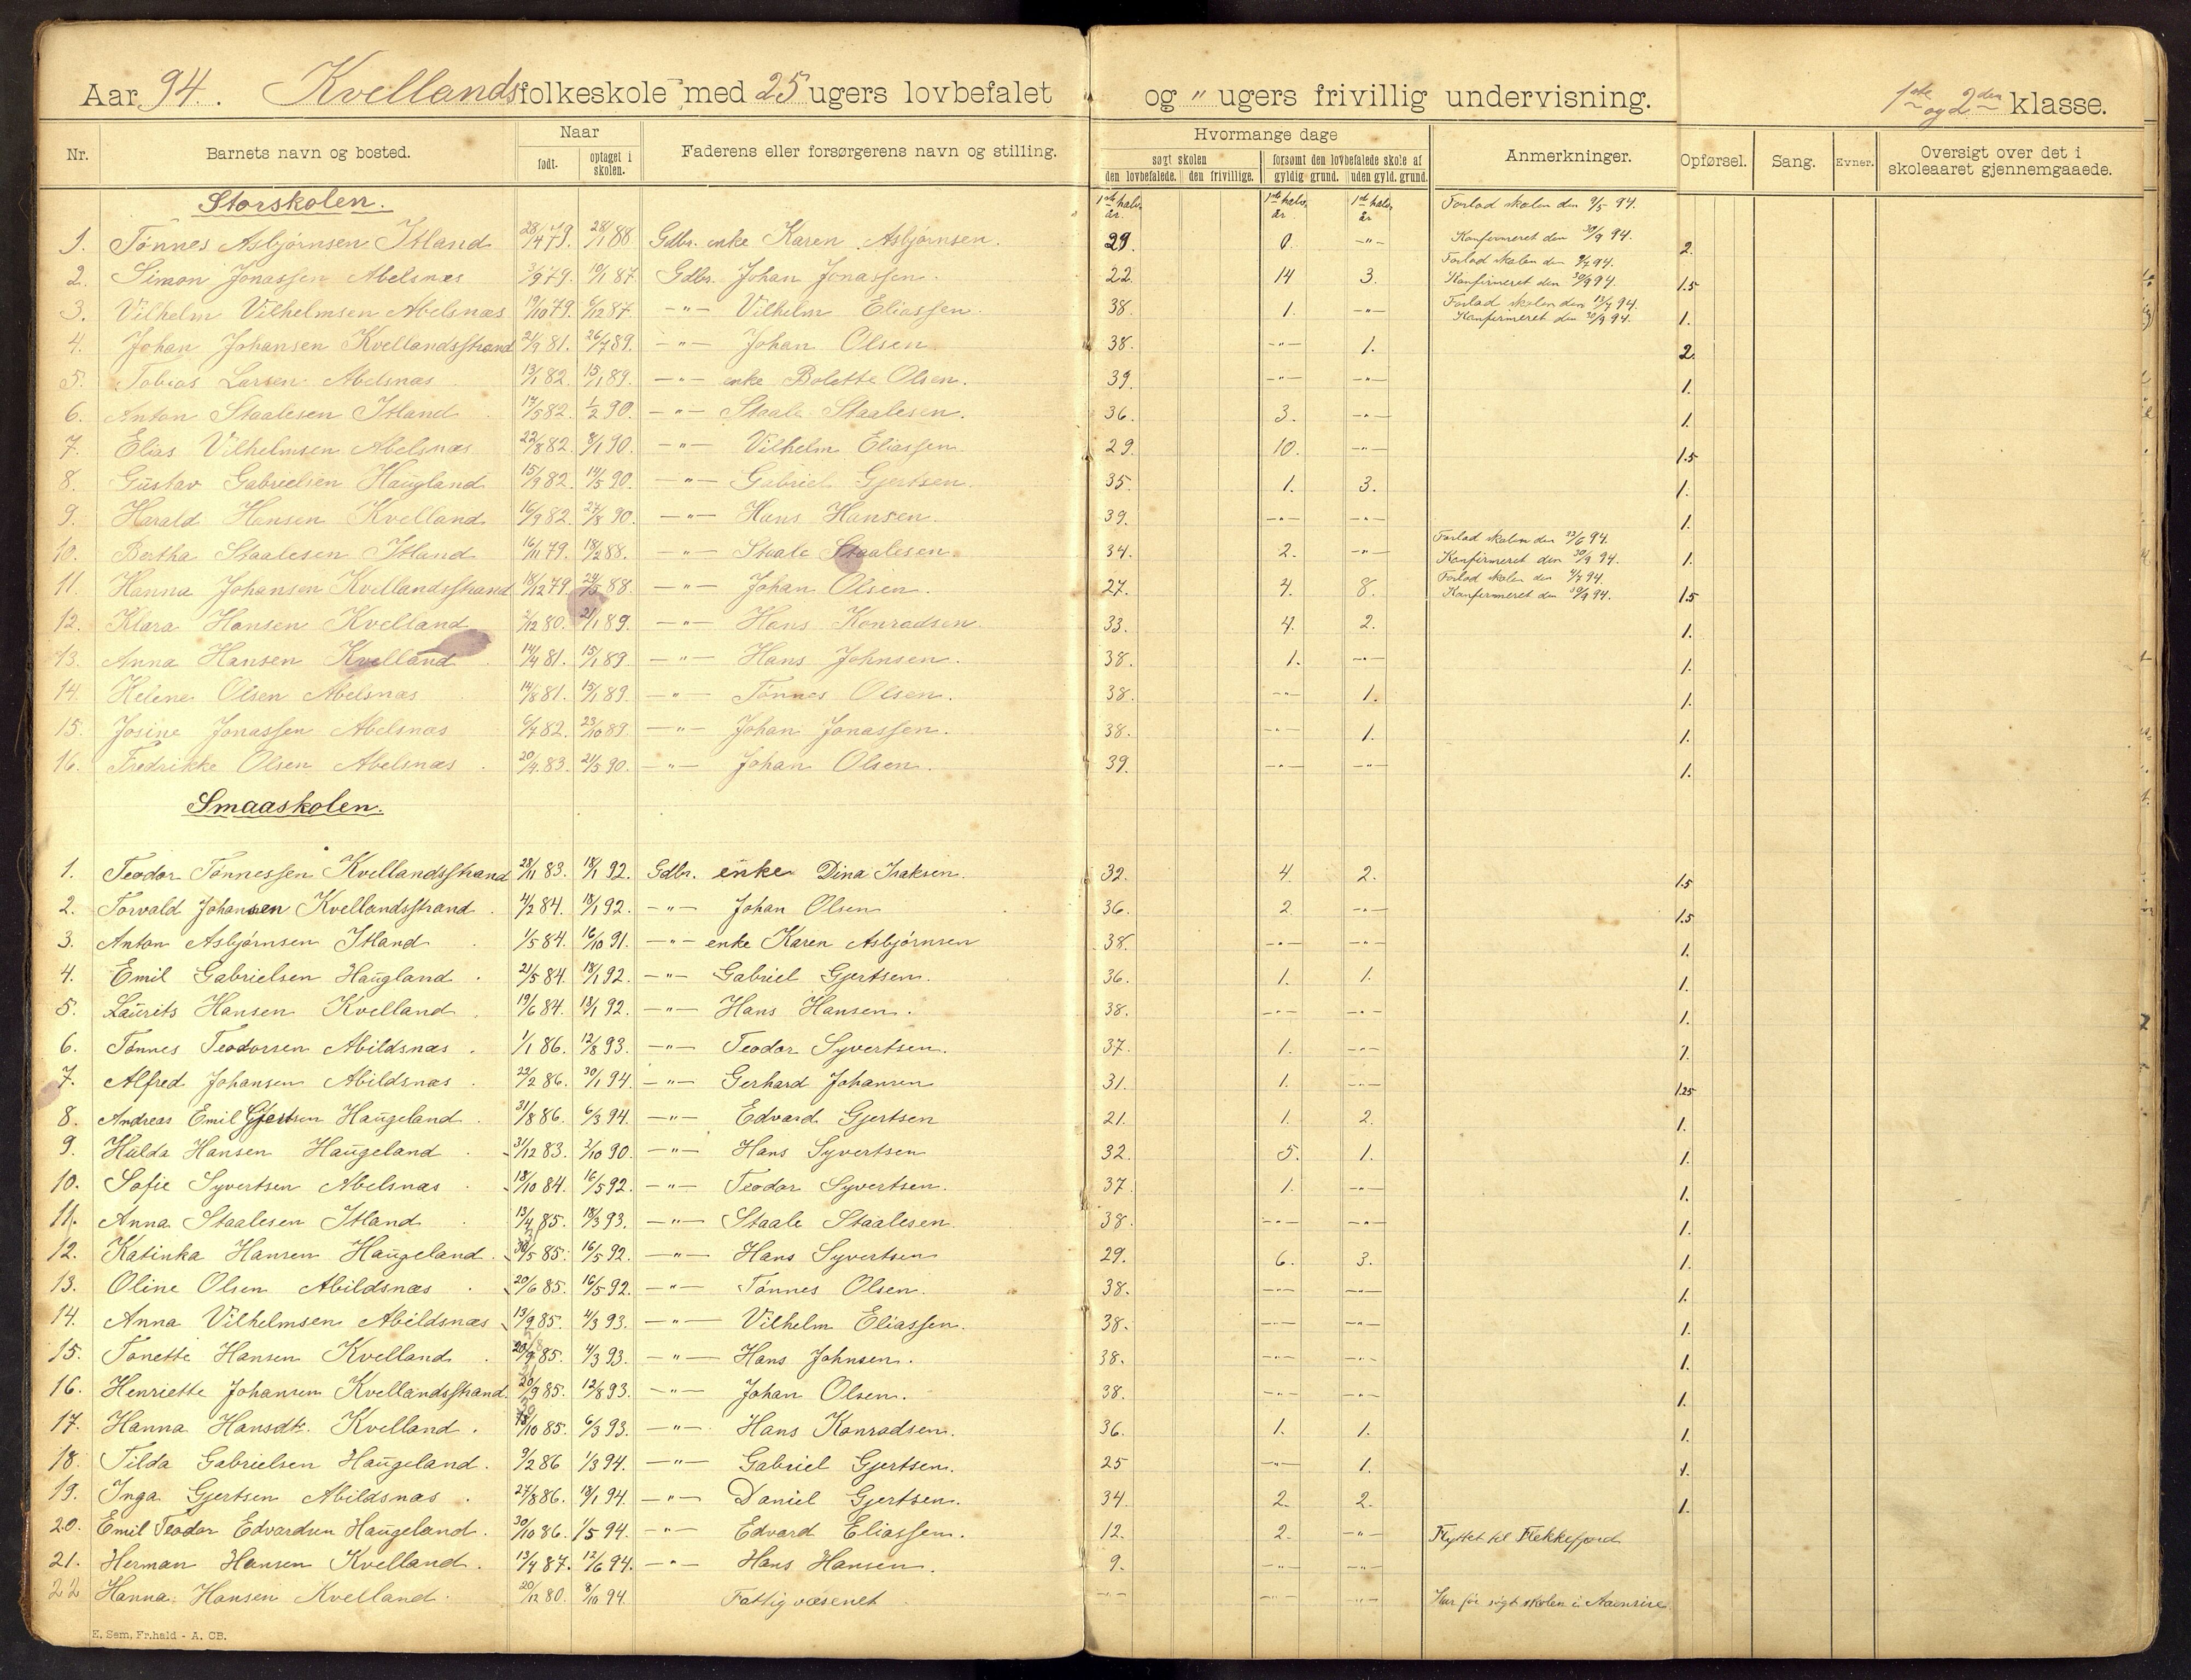 Aar 94. Kvellands folkeskole med 25 ugers lovbefalet og " ugers frivillig undervisning. 1ste og 2den klasse.
Nr. Barnets navn og bosted. Naar født. optaget i skolen. Faderens eller forsørgerens navn og stilling. Hvormange dage søgt skolen den lovbefalede. den frivillige. forsømt den lovbefalede skole af gyldig grund. uden gyld. grund. Anmerkninger. Opførsel. Sang. Evner. Oversigt over det i skoleaaret gjennemgaaede.
Storskolen. 1ste halvår 1ste halvår 1ste halvår Forlod skolen den 9/5 94.
1. Tønnes Asbjørnsen Itland 28/4 79. 28/1 88 Gdbr. enke Karen Asbjørnsen. 29 0. -"- Konfirmeret den 30/9 94. 2.
2. Simon Jonassen Abelsnæs 3/9 79. 19/1 87. Gdbr. Johan Jonassen. 22. 14 3. Forlod skolen den 9/7 94. Konfirmeret den 30/9 94. 1.5
3. Vilhelm Vilhelmsen Abelsnæs 19/10 79. 6/12 87. -"- Vilhelm Eliassen. 38. 1. -"- Forlod skolen den 13/7 94. Konfirmeret den 30/9 94. 1.
4. Johan Johansen Kvellandsstrand 21/9 81. 26/7 89. -"- Johan Olsen 38. -"- 1. 2.
5. Tobias Larsen Abelsnæs 13/1 82. 15/1 89. -"- enke Bolette Olsen. 39. -"- -"- 1.
6. Anton Staalesen Itland 17/5 82. 1/2 90. -"- Staale Staalesen. 36. 3. -"- 1.
7. Elias Vilhelmsen Abelsnæs 22/8 82. 8/1 90. -"- Vilhelm Eliassen 29. 10. -"- 1.5
8. Gustav Gabrielsen Haugland 15/9 82. 14/5 90. -"- Gabriel Gjertsen. 35. 1. 3. 1.
9. Harald Hansen Kvelland 16/9 82. 27/8 90. -"- Hans Hansen. 39. -"- -"- 1.
10. Bertha Staalesen Itland 16/11 79. 18/2 88. -"- Staale Staalesen. 34. 2. -"- Forlod skolen den 23/6 94. Konfirmeret den 30/9 94. 1.
11. Hanna Johansen Kvellandsstrand 18/12 79. 24/5 88. -"- Johan Olsen. 27. 4. 8. Forlod skolen den 4/7 94. Konfirmeret den 30/9 94. 1.5
12. Klara Hansen Kvelland 2/12 80. 21/1 89. -"- Hans Konradsen. 33. 4. 2. 1.
13. Anna Hansen Kvelland 14/4 81. 15/1 89. -"- Hans Johnsen. 38. 1. -"- 1.
14. Helene Olsen Abelsnæs 14/8 81. 15/1 89. -"- Tønnes Olsen. 38. -"- 1. 1.
15. Josine Jonassen Abelsnæs 6/7 82. 23/10 89. -"- Johan Jonassen. 38. -"- 1. 1.
16. Fredrikke Olsen Abelsnæs 20/4 83. 21/5 90. -"- Johan Olsen. 39. -"- -"- 1.
Smaaskolen.
1. Teodor Tønnessen Kvellandsstrand 28/11 83. 18/1 92. Gdbr. enke Dina Isaksen. 32. 4. 2. 1.5
2. Torvald Johansen Kvellandsstrand. 4/2 84. 18/1 92. -"- Johan Olsen 36. 2. -"- 1.5
3. Anton Asbjørnsen Itland 1/5 84. 16/10 91. -"- enke Karen Asbjørnsen 38. -"- -"- 1.
4. Emil Gabrielsen Haugland. 21/5 84. 18/1 92. -"- Gabriel Gjertsen. 36. 1. 1. 1.
5. Laurits Hansen Kvelland. 19/6 84. 18/1 92. -"- Hans Hansen. 38. -"- -"- 1.
6. Tønnes Teodorsen Abildsnæs. 1/1 86. 12/8 93. -"- Teodor Syvertsen. 37. 1. -"- 1.
7. Alfred Johansen Abildsnæs. 22/2 86. 30/1 94. -"- Gerhard Johansen 31. 1. -"- 1.25
8. Andreas Emil Gjertsen Haugeland. 31/8 86. 6/3 94. -"- Edvard Gjertsen 21. 1. 2. 1.
9. Hulda Hansen Haugeland. 31/12 83. 2/10 90. -"- Hans Syvertsen 32. 5. 1. 1.
10. Sofie Syvertsen Abelsnæs. 18/10 84. 16/5 92. -"- Teodor Syvertsen. 37. 1. -"- 1.
11. Anna Staalesen Itland 13/4 85. 18/3 93. -"- Staale Staalesen. 38. -"- -"- 1.
12. Katinka Hansen Haugeland. 30/5 85. 16/5 92. -"- Hans Syvertsen 29. 6. 3. 1.
13. Oline Olsen Abildsnæs. 20/6 85. 16/5 92. -"- Tønnes Olsen. 38. -"- -"- 1.
14. Anna Vilhelmsen Abildsnæs 13/9 85. 4/3 93. -"- Vilhelm Eliassen. 38. -"- -"- 1.
15. Tonette Hansen Kvelland. 20/9 85. 4/3 93. -"- Hans Johnsen. 38. -"- -"- 1.
16. Henriette Johansen Kvellandsstrand. 20/9 85. 12/8 93. -"- Johan Olsen. 38. -"- -"- 1.
17. Hanna Hansdtr. Kvelland. /10 85. 6/3 93. -"- Hans Konradsen. 36. 1. 1. 1.
18. Tilda Gabrielsen Haugeland. 9/2 86 1/3 94. -"- Gabriel Gjertsen. 25 -"- 1. 1.
19. Inga Gjertsen Abildsnæs. 27/8 86. 18/1 94. -"- Daniel Gjertsen. 34. 2. 2. 1.
20. Emil Teodor Edvardsen Haugeland. 30/10 86. 1/5 94. -"- Edvard Eliassen. 12. 2. -"- Flyttet til Flekkefjord
21. Herman Hansen Kvelland. 13/4 87. 12/6 94. -"- Hans Hansen. 9. -"- -"-
22 Hanna Hansen Kvelland. 20/12 80. 8/10 94. Fattigvæsenet. -"- -"- -"- Har før søgt skolen i
E. Sem, Fr.hald - A. CB.